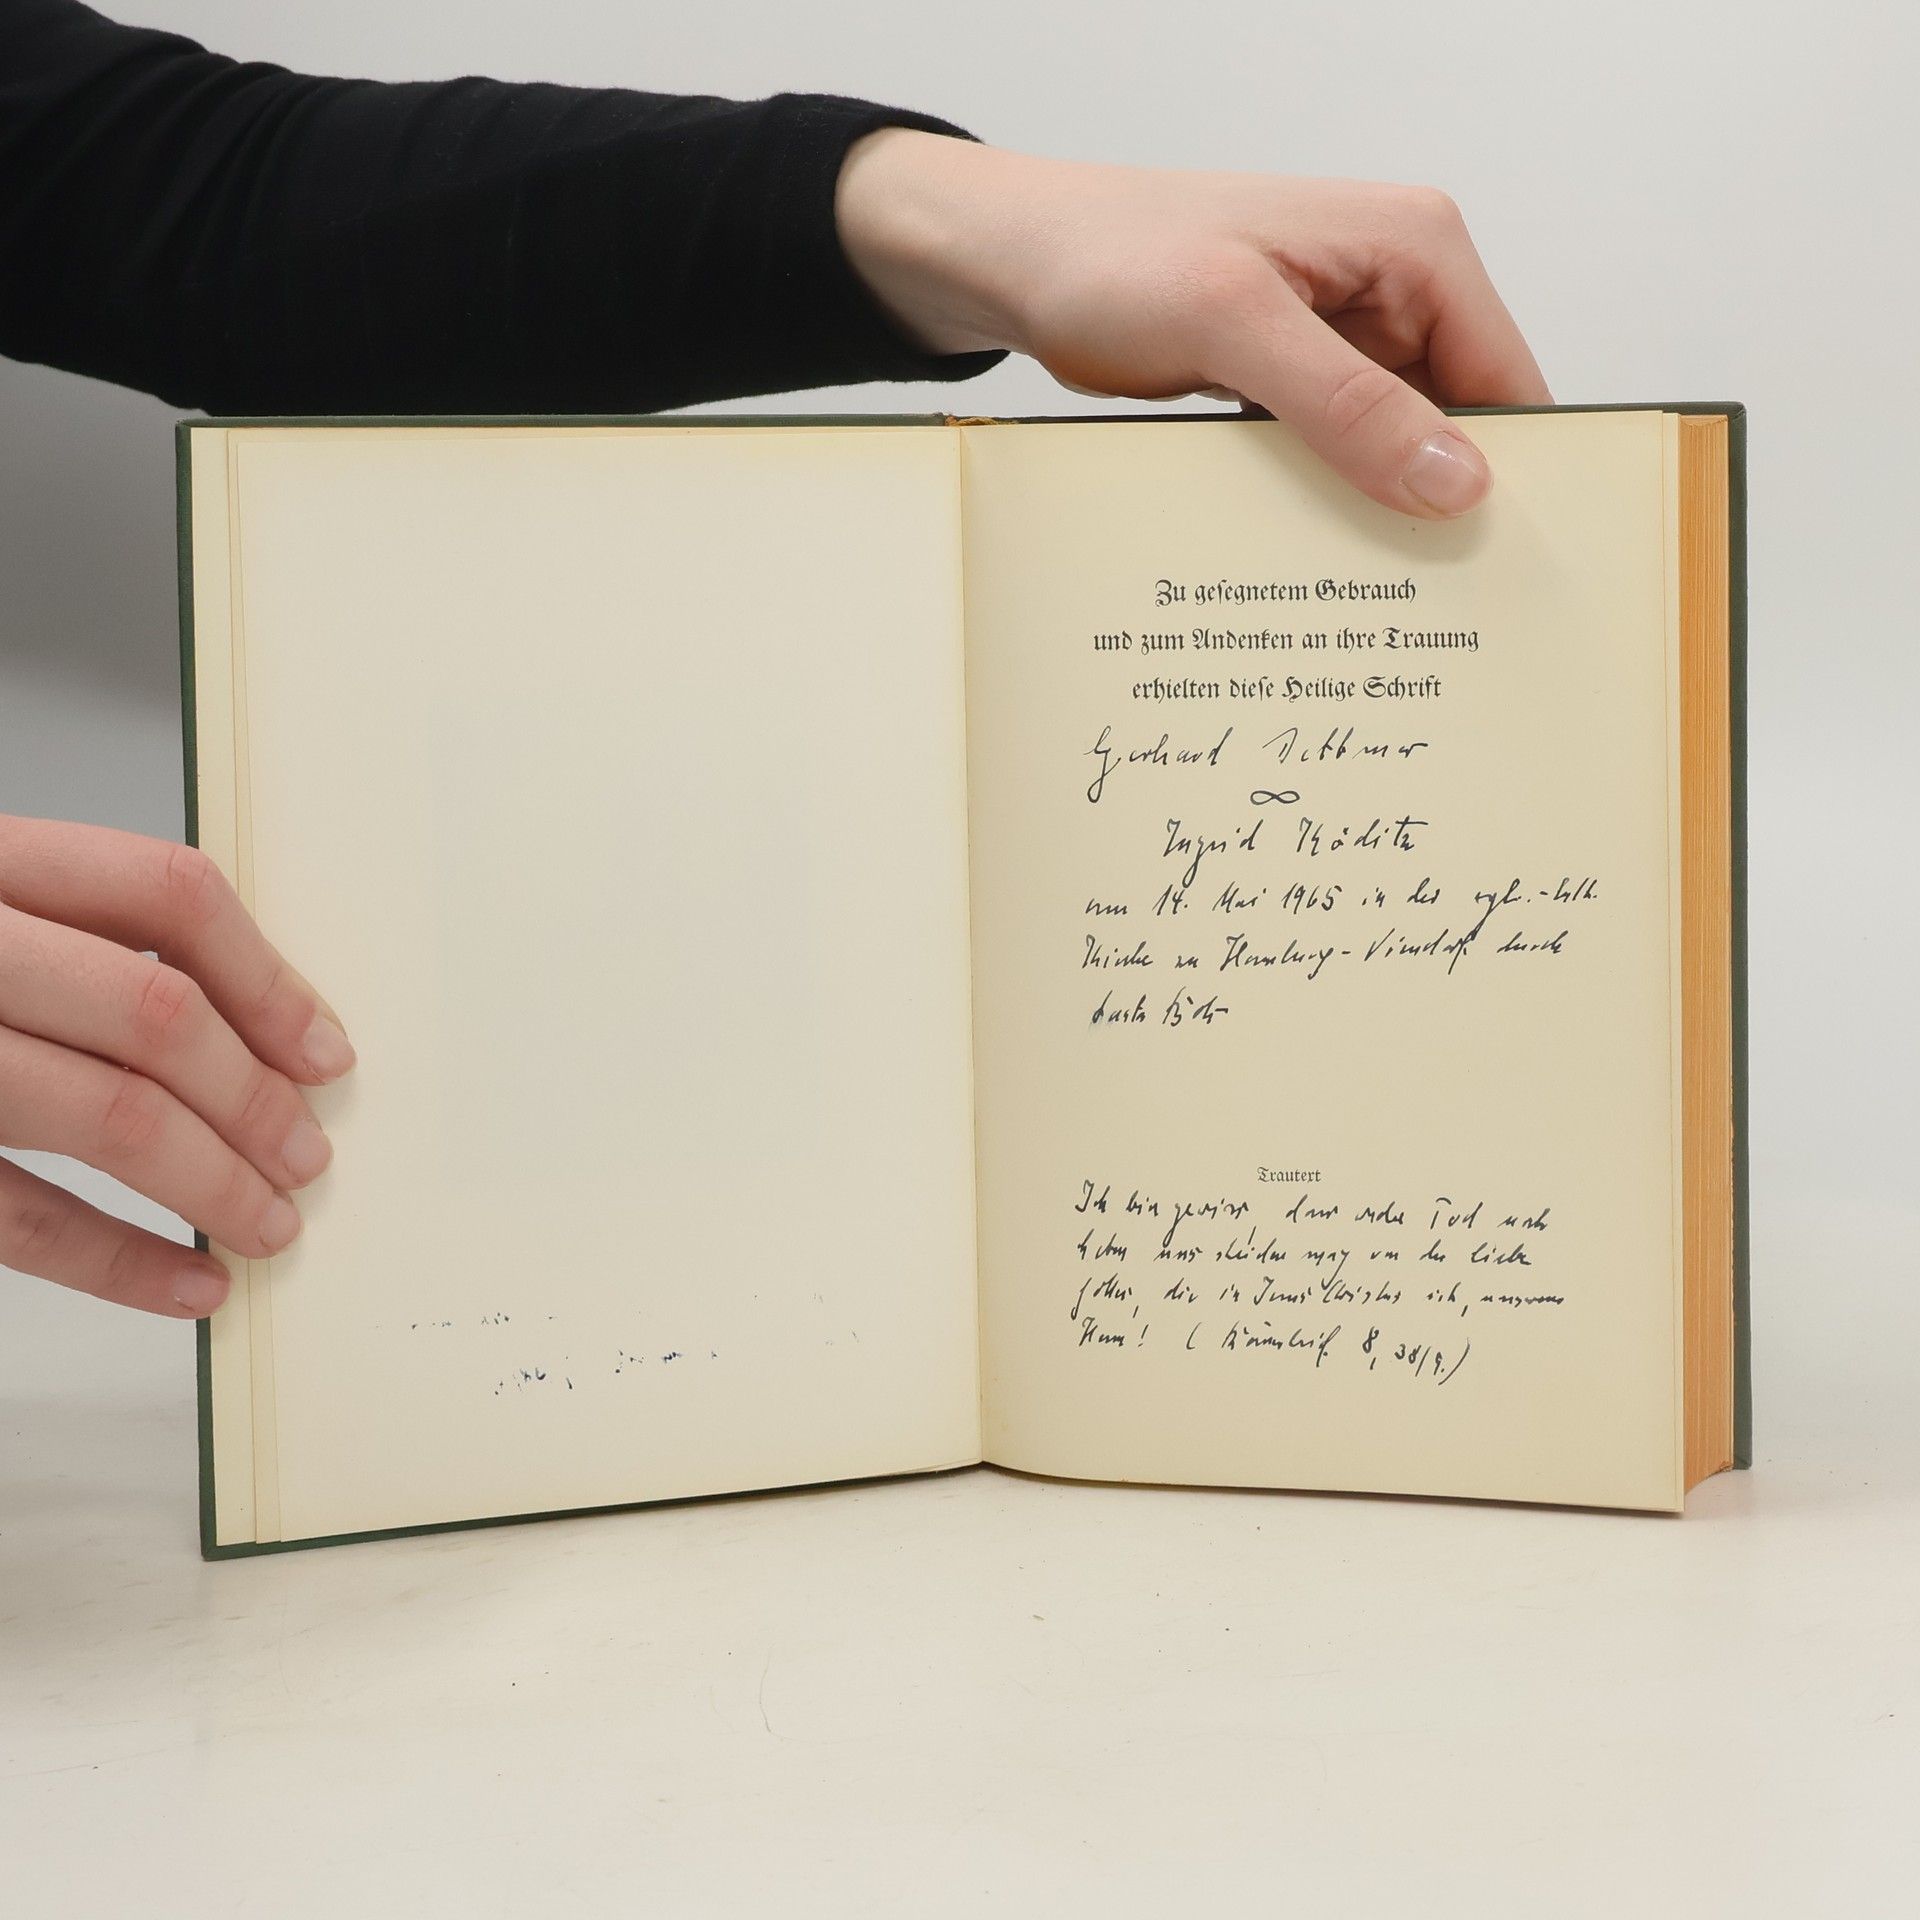 Zu gesegnetem Gebrauch
und zum Andenken an ihre Trauung
erhielten diese Heilige Schrift
Gerhard Dettmer
∞
Ingrid Köditz
am 14. Mai 1965 in der evgl.-luth.
Kirche zu Hamburg- durch
Pastor
Trautext
Ich bin gewiss, dass weder Tod noch
Leben uns scheiden mag von der Liebe
Gottes, die in Jesus Christus ist, unserem
Herrn! (Römerbrief 8, 38/9.)